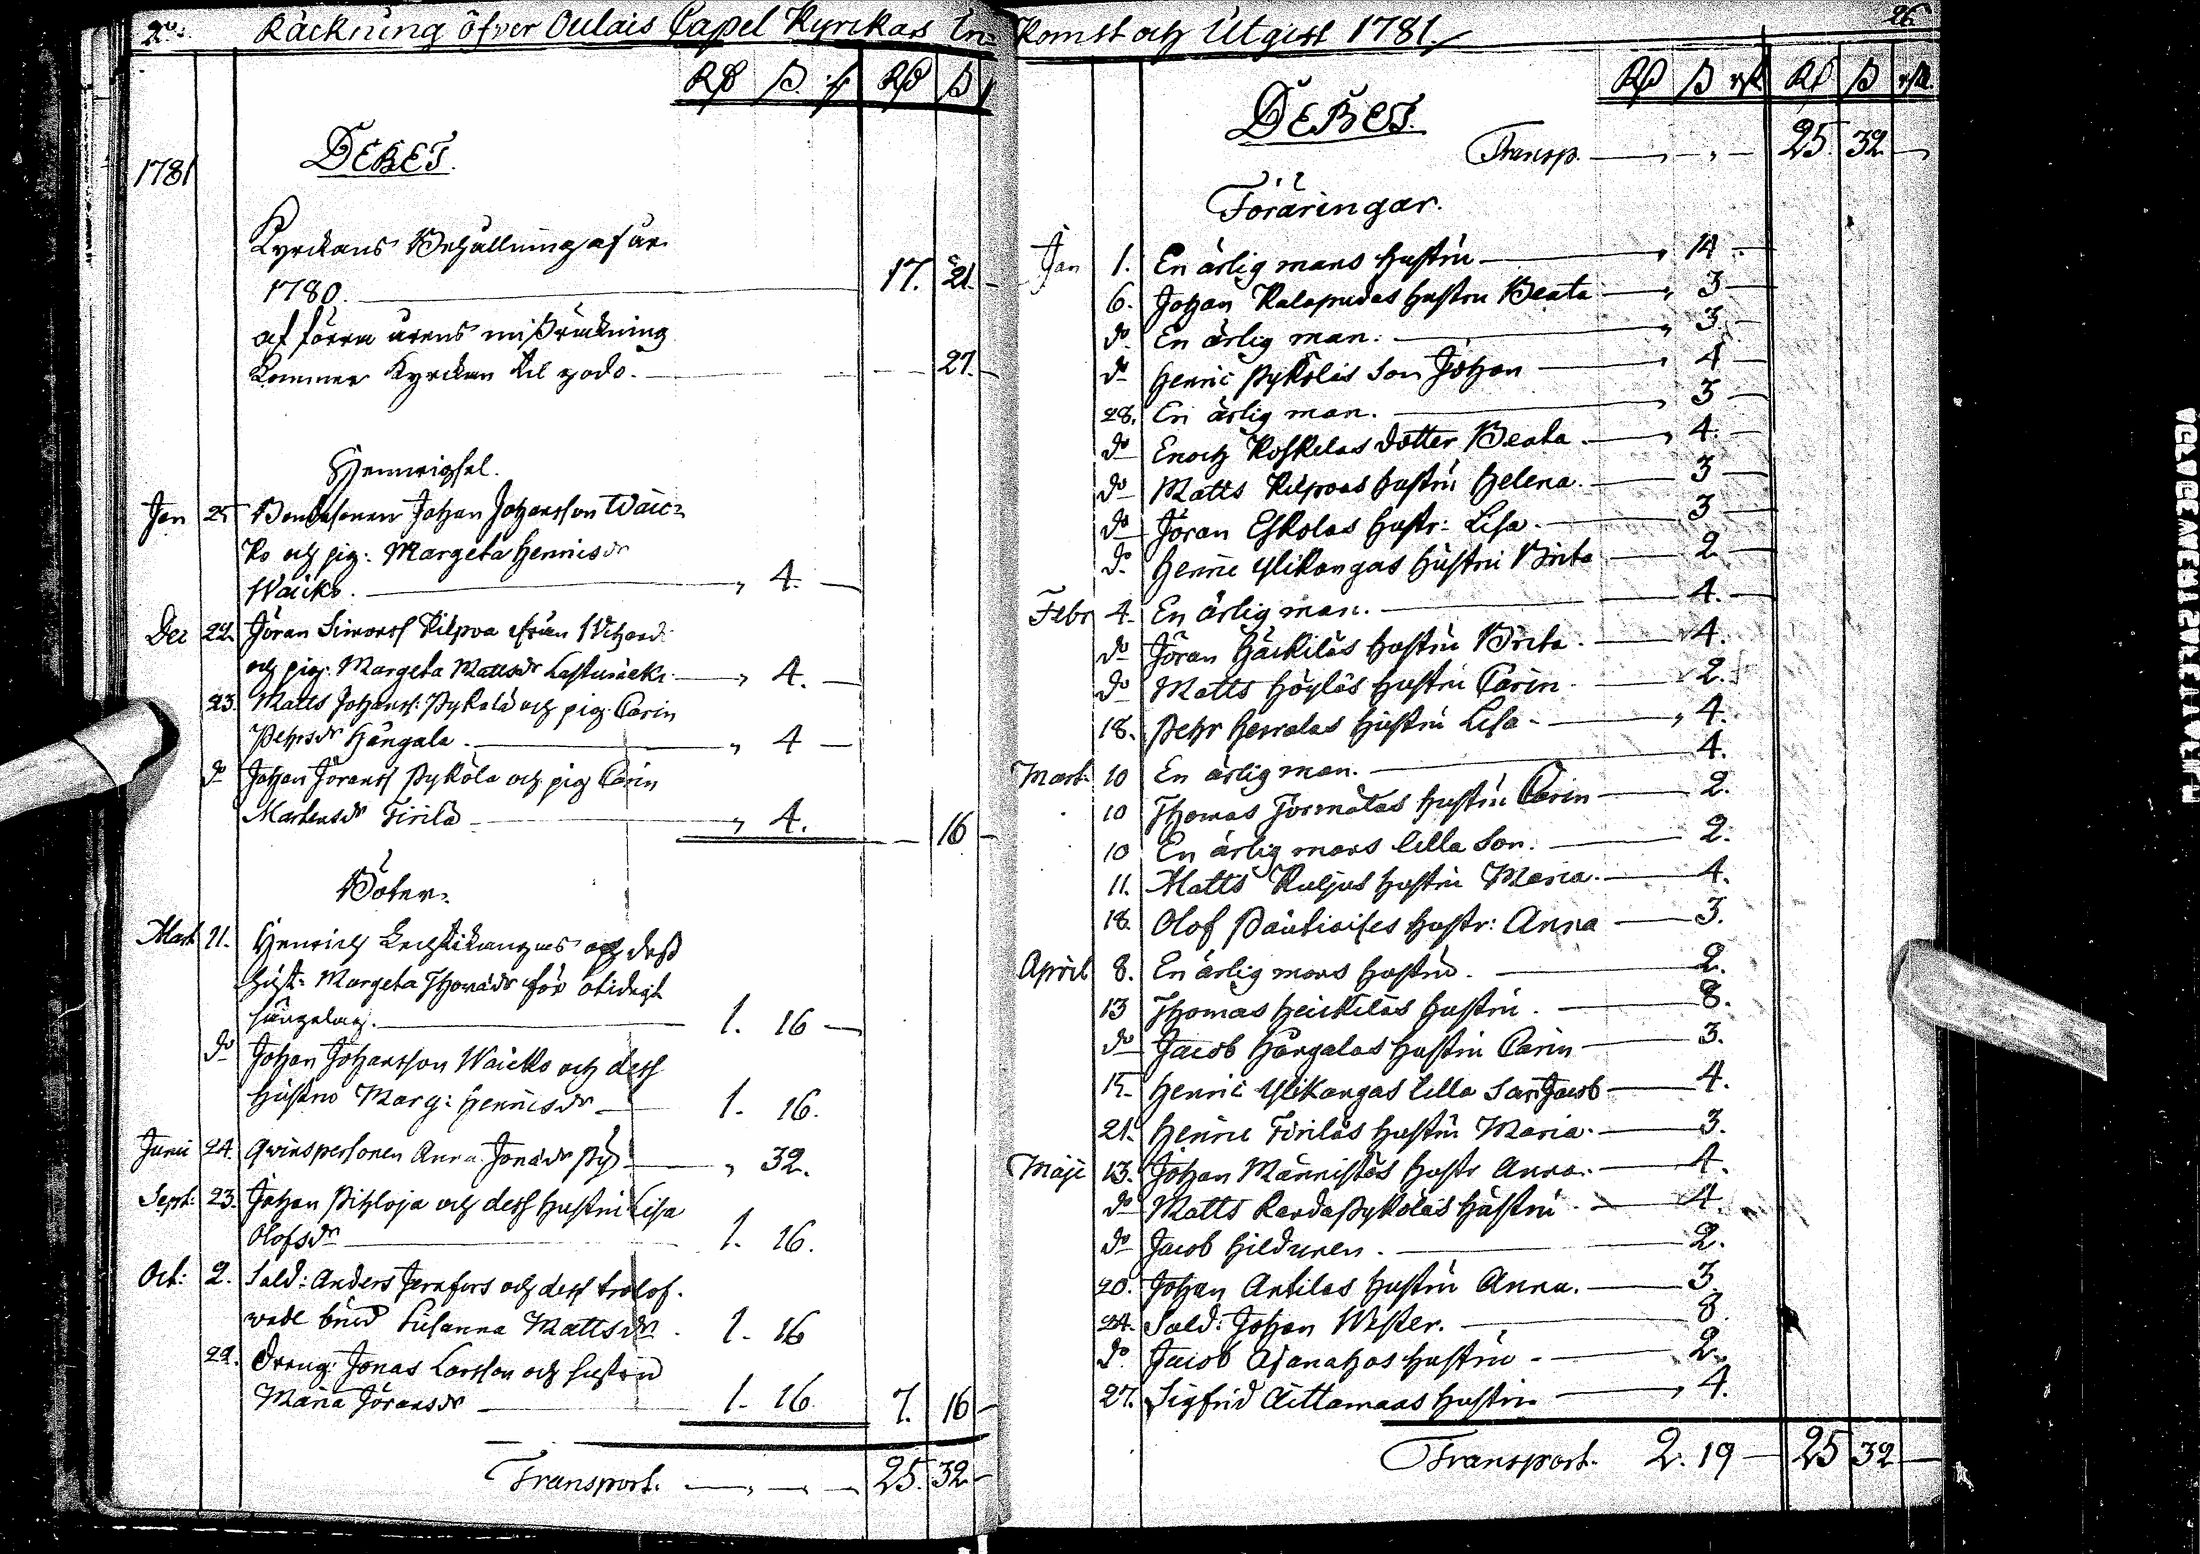 Räckning öfver Oulais Capel Kyrckas In-
Rd ß rst Rd ß
1781 DEBET.
Kyrckans Behållning af år
1780. 17. 21.
af förra årens mißräckning
kommer Kyrckan til godo. 27.
Hemmeigsel.
Jan 25 Bondesonen Johan Johansson Waic-
ko och pig: Margeta Henricsdr
Waicko. 4.
Dec 22. Jöran Simonss Kilpua ifrån
och pig: Margeta Mattsdr 4.
23. Matts Johanss: Pykälä och pig: Carin
Pehrsdr Hångala. 4
do Johan Jöranss Pyköla och pig Carin
Martensdr Firilä 4. 16
Böter.
Mart 11. Henrich Lechtikangas och deß
hust: Margeta Thomædr för otidigt
sängelag. 1. 16
do Johan Johansson Waicko och dess
hustro Marg: Henricsdr 1. 16.
Junii 24. Qwinspersonen Anna Jonædr Py 32.
Sept: 23. Johan Pihloja och dess hustru Lisa
Olofsdr 1. 16.
Oct: 2. Sold: Anders Jernfors och dess trolof-
wade brud Susanna Mattsdr 1. 16
22. Dreng: Jonas Larsson och hustru
Maria Jöransdr 1. 16. 7. 16
Transport. 25. 32
komst och Utgift 1781. 26
Rd ß rst Rd ß rst
DEBET.
Transp. 25 32
Föräringar.
Jan 1. En ärlig mans hustru 14
6. Johan Kalapudas hustru Beata 3
do En ärlig man. 3
do Henric Pyköläs son Johan 4
28. En ärlig man. 3
do Enoch Koskelas dotter Beata 4.
do Matts Kilpuas hustru Helena 3
do Jöran Eskolas hustr: Lisa. 3
do Henric Ylikangas hustru Brita 2
Febr 4. En ärlig man. 4.
do Jöran Häckiläs hustru Brita. 4.
do Matts Höyläs hustru Carin. 2.
18. Pehr Herralas hustru Lisa. 4.
Mart: 10 En ärlig man. 4.
10 Thomas Tormälas hustru Carin 2.
10 En ärlig mans lilla son. 2.
11. Matts Kuljus hustru Maria. 4.
18. Olof hustr: Anna 3.
April 8. En ärlig mans hustru. 2.
13 Thomas Heickiläs hustru. 8.
do Jacob Hångalas hustru Carin 3.
15. Henric Ylikangas lilla son Jacob 4.
21. Henric Firiläs hustru Maria. 3.
Maji 13. Johan Männistös hustr Anna. 4.
do Matts Pyköläs hustru 4.
do Jacob Hilduren. 2.
20. Johan Antilas hustru Anna. 3.
24. Sold: Johan Wester. 8
do Jacob Ajanahas hustru 2.
27. Sigfrid Aittamaas hustru 4.
Transport. 2. 19 25 32